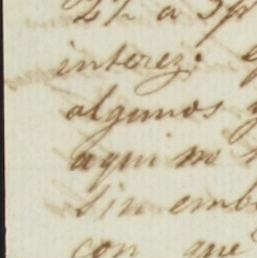 2½ a 3p
interez;
algunos y
aqui no
Sin emb
con que